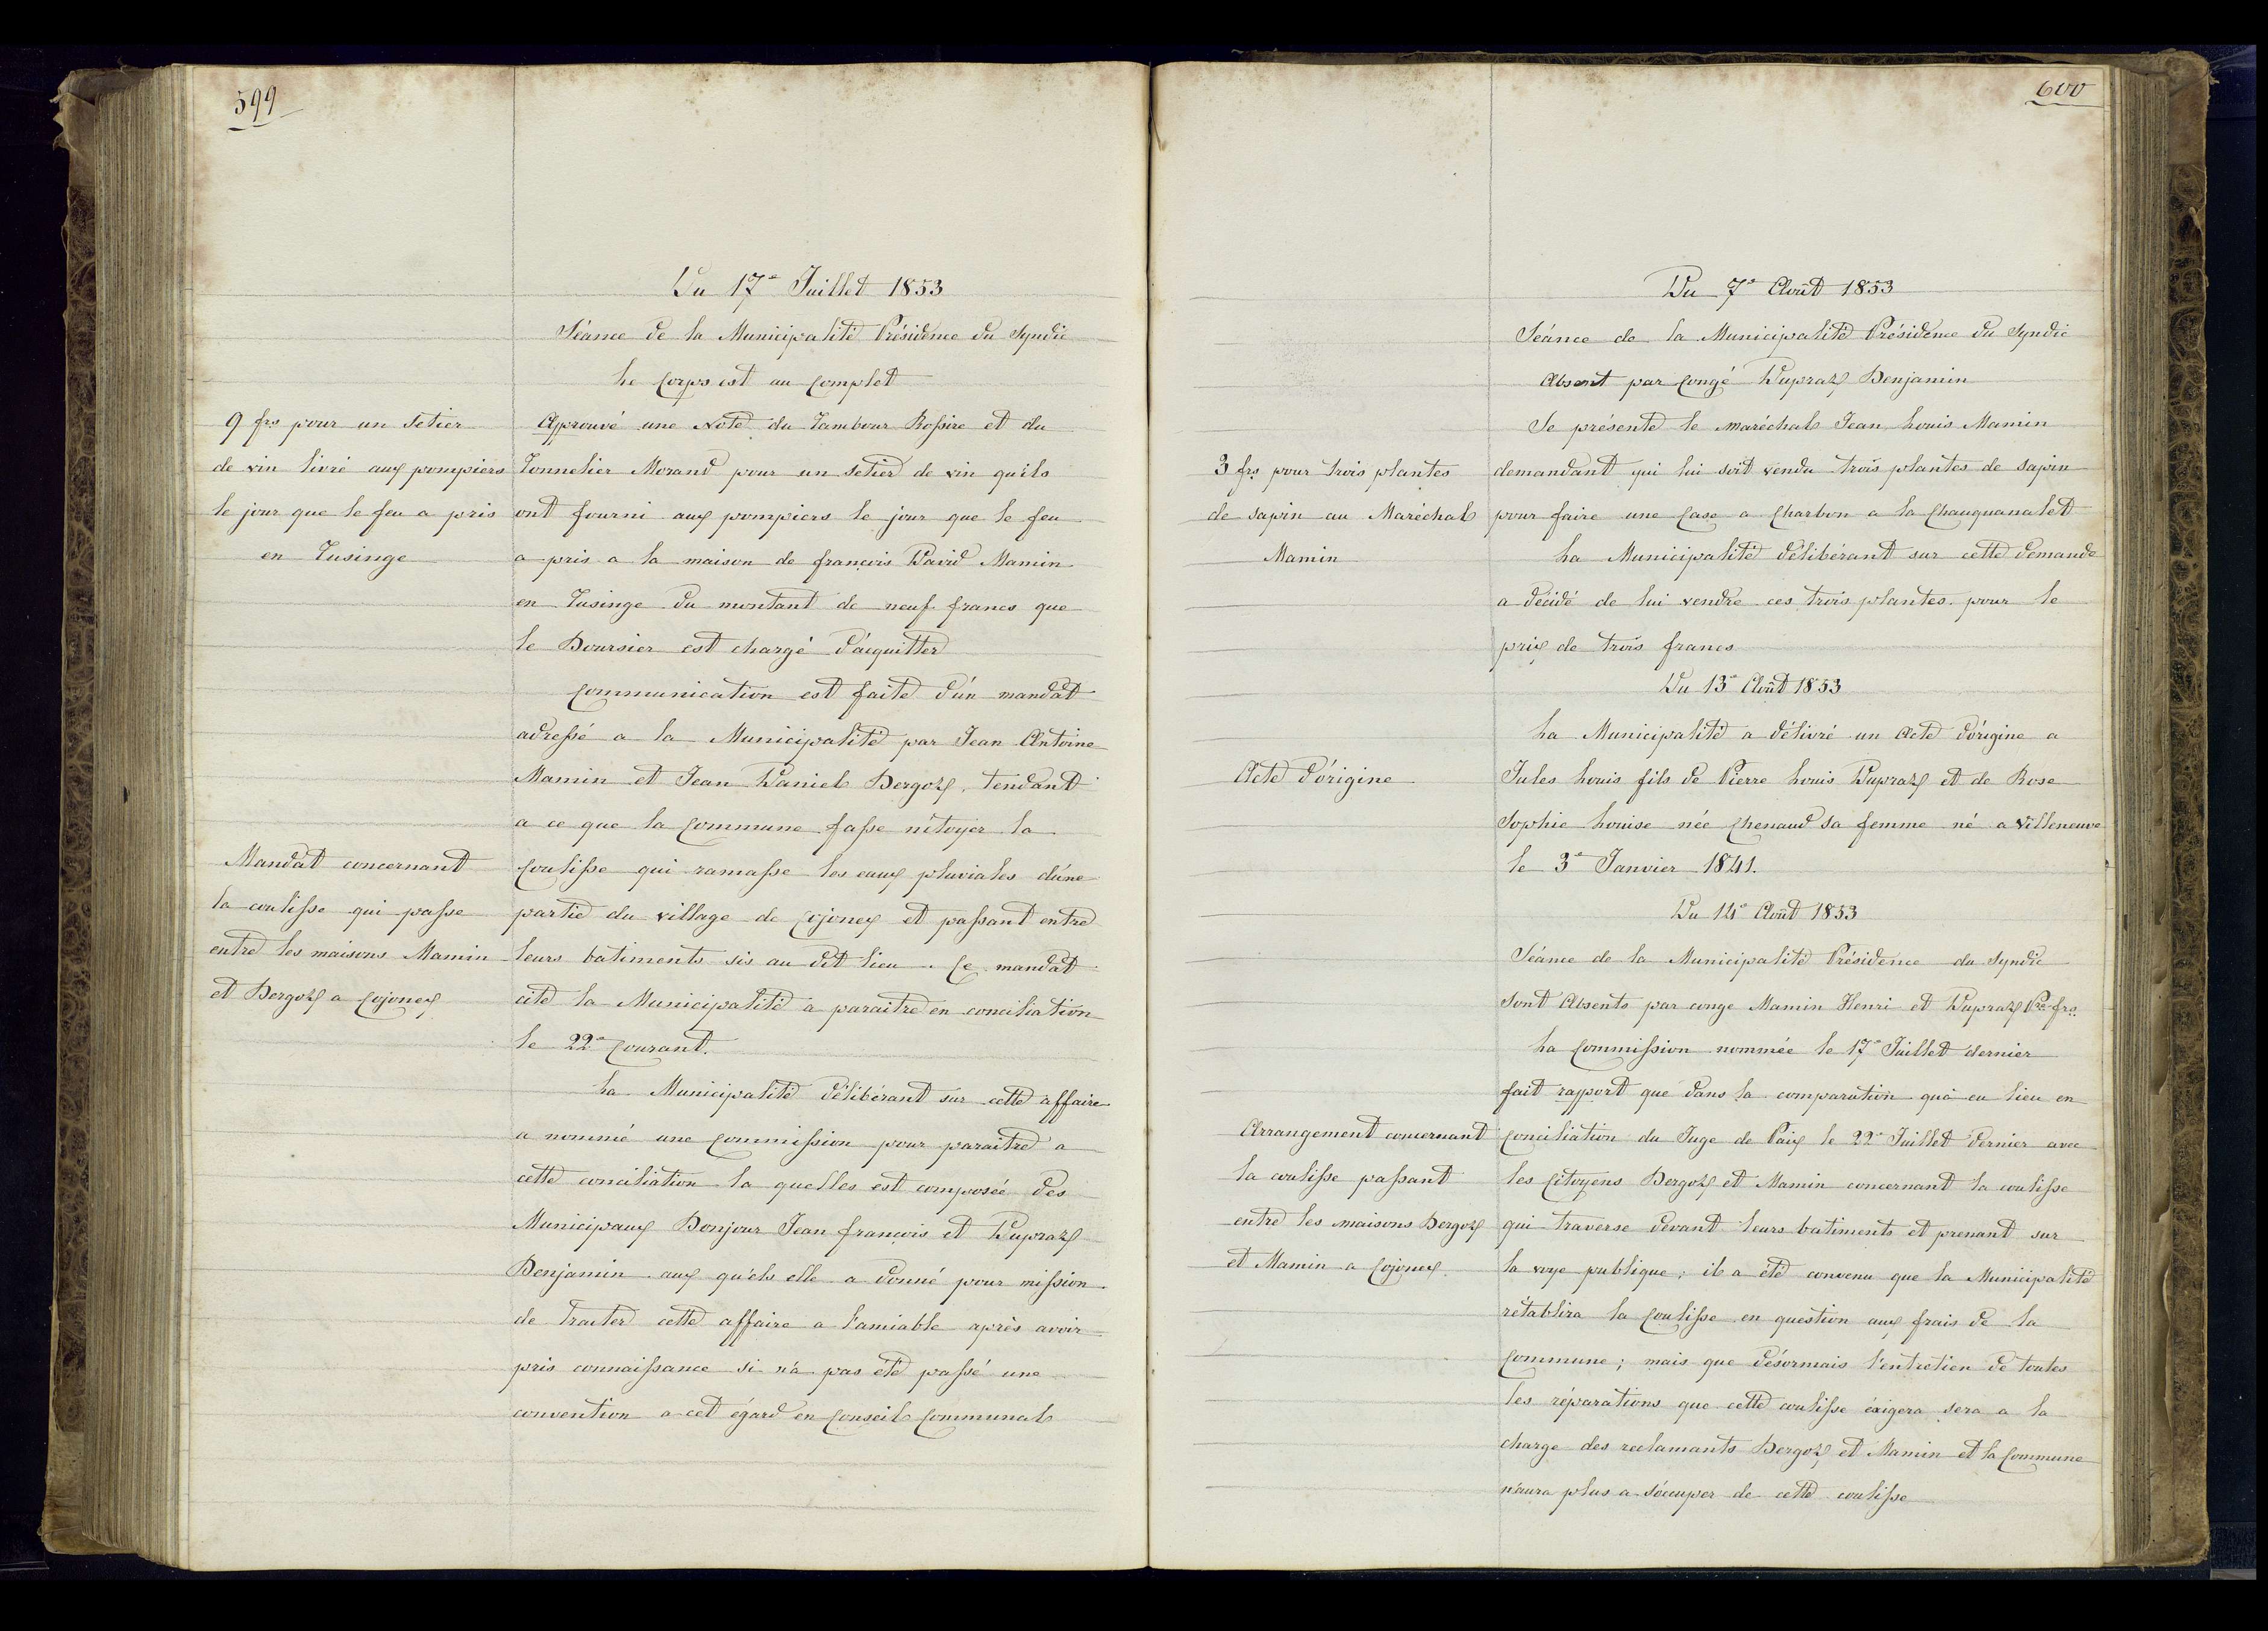 599
Du 17e Juillet 1853
Séance de la Municipalité Présidence du Syndic
Le Corps est au Complet
9 frs pour un Setier
de vin livré aux pompiers
le jour que le feu a pris
en Tusinge
Approuvé une Note du Tambour Rossire et du
Tonnelier Morand pour un Setier de vin qu'ils
ont fourni aux pompiers le jour que le feu
a pris a la maison de françois David Mamin
en Tusinge du montant de neuf francs que
le Boursier est chargé d'acquitter
Communication est faite d'un mandat
adressé a la Municipalité par Jean Antoine
Mamin et Jean Daniel Dergoz, tendant
a ce que la Commune fasse nétoyer la
Mandat concernant
la coulisse qui passe
entre les maisons Mamin
et Dergoz a Cojonex
Coulisse qui ramasse les eaux pluviales d'une
partie du village de Cojonex et passant entre
leurs batiments sis au dit lieu. Ce mandat
cite la Municipalité a paraitre en conciliation
le 22e Courant.
La Municipalité délibérant sur cette affaire
a nommé une Commission pour paraitre a
cette conciliation la quelles est composée des
Municipaux Bonjour Jean françois et Dupraz
Benjamin aux quéls elle a donné pour mission
de Traiter cette affaire a l'amiable après avoir
pris connaissance si n'a pas été passé une
convention a cet égard en Conseil Communal
600
Du 7e Août 1853
Séance de la Municipalité Présidence du Syndic
Absent par Congé Dupraz Benjamin
Se présente le maréchal Jean Louis Mamin
3 frs pour trois plantes
de sapin au Maréchal
Mamin
demandant qui lui soit vendu trois plantes de sapin
pour faire une Case a Charbon a la Chauquanalet
La Municipalité délibérant sur cette demande
a décidé de lui vendre ces trois plantes pour le
prix de trois francs
Du 13e Août 1853
La Municipalité a délivré un Acte d'origine a
Acte d'origine
Jules Louis fils de Pierre Louis Dupraz et de Rose
Sophie Louise née Chenaud sa femme né a Villeneuve
le 3e Janvier 1841.
Du 14e Août 1853
Séance de la Municipalité Présidence du Syndic
Sont Absents par conge Mamin Henri et Dupraz Pre frs
La Commission nommée le 17e Juillet dernier
fait rapport que dans la comparution qu'a eu lieu en
Arrangement concernant
la coulisse passant
entre les maisons Dergoz
et Mamin a Cojonex.
Conciliation du Juge de Paix le 22e Juillet dernier avec
les Citoyens Dergoz et Mamin concernant la coulisse
qui traverse devant leurs batiments et prenant sur
la voye publique; il a été convenu que la Municipalité
rétablira la Coulisse en question aux frais de la
Commune; mais que désormais l'entretien de toutes
les réparations que cette coulisse éxigera sera a la
charge des reclamants Dergoz et Mamin et la Commune
n'aura plus a s'occuper de cette coulisse